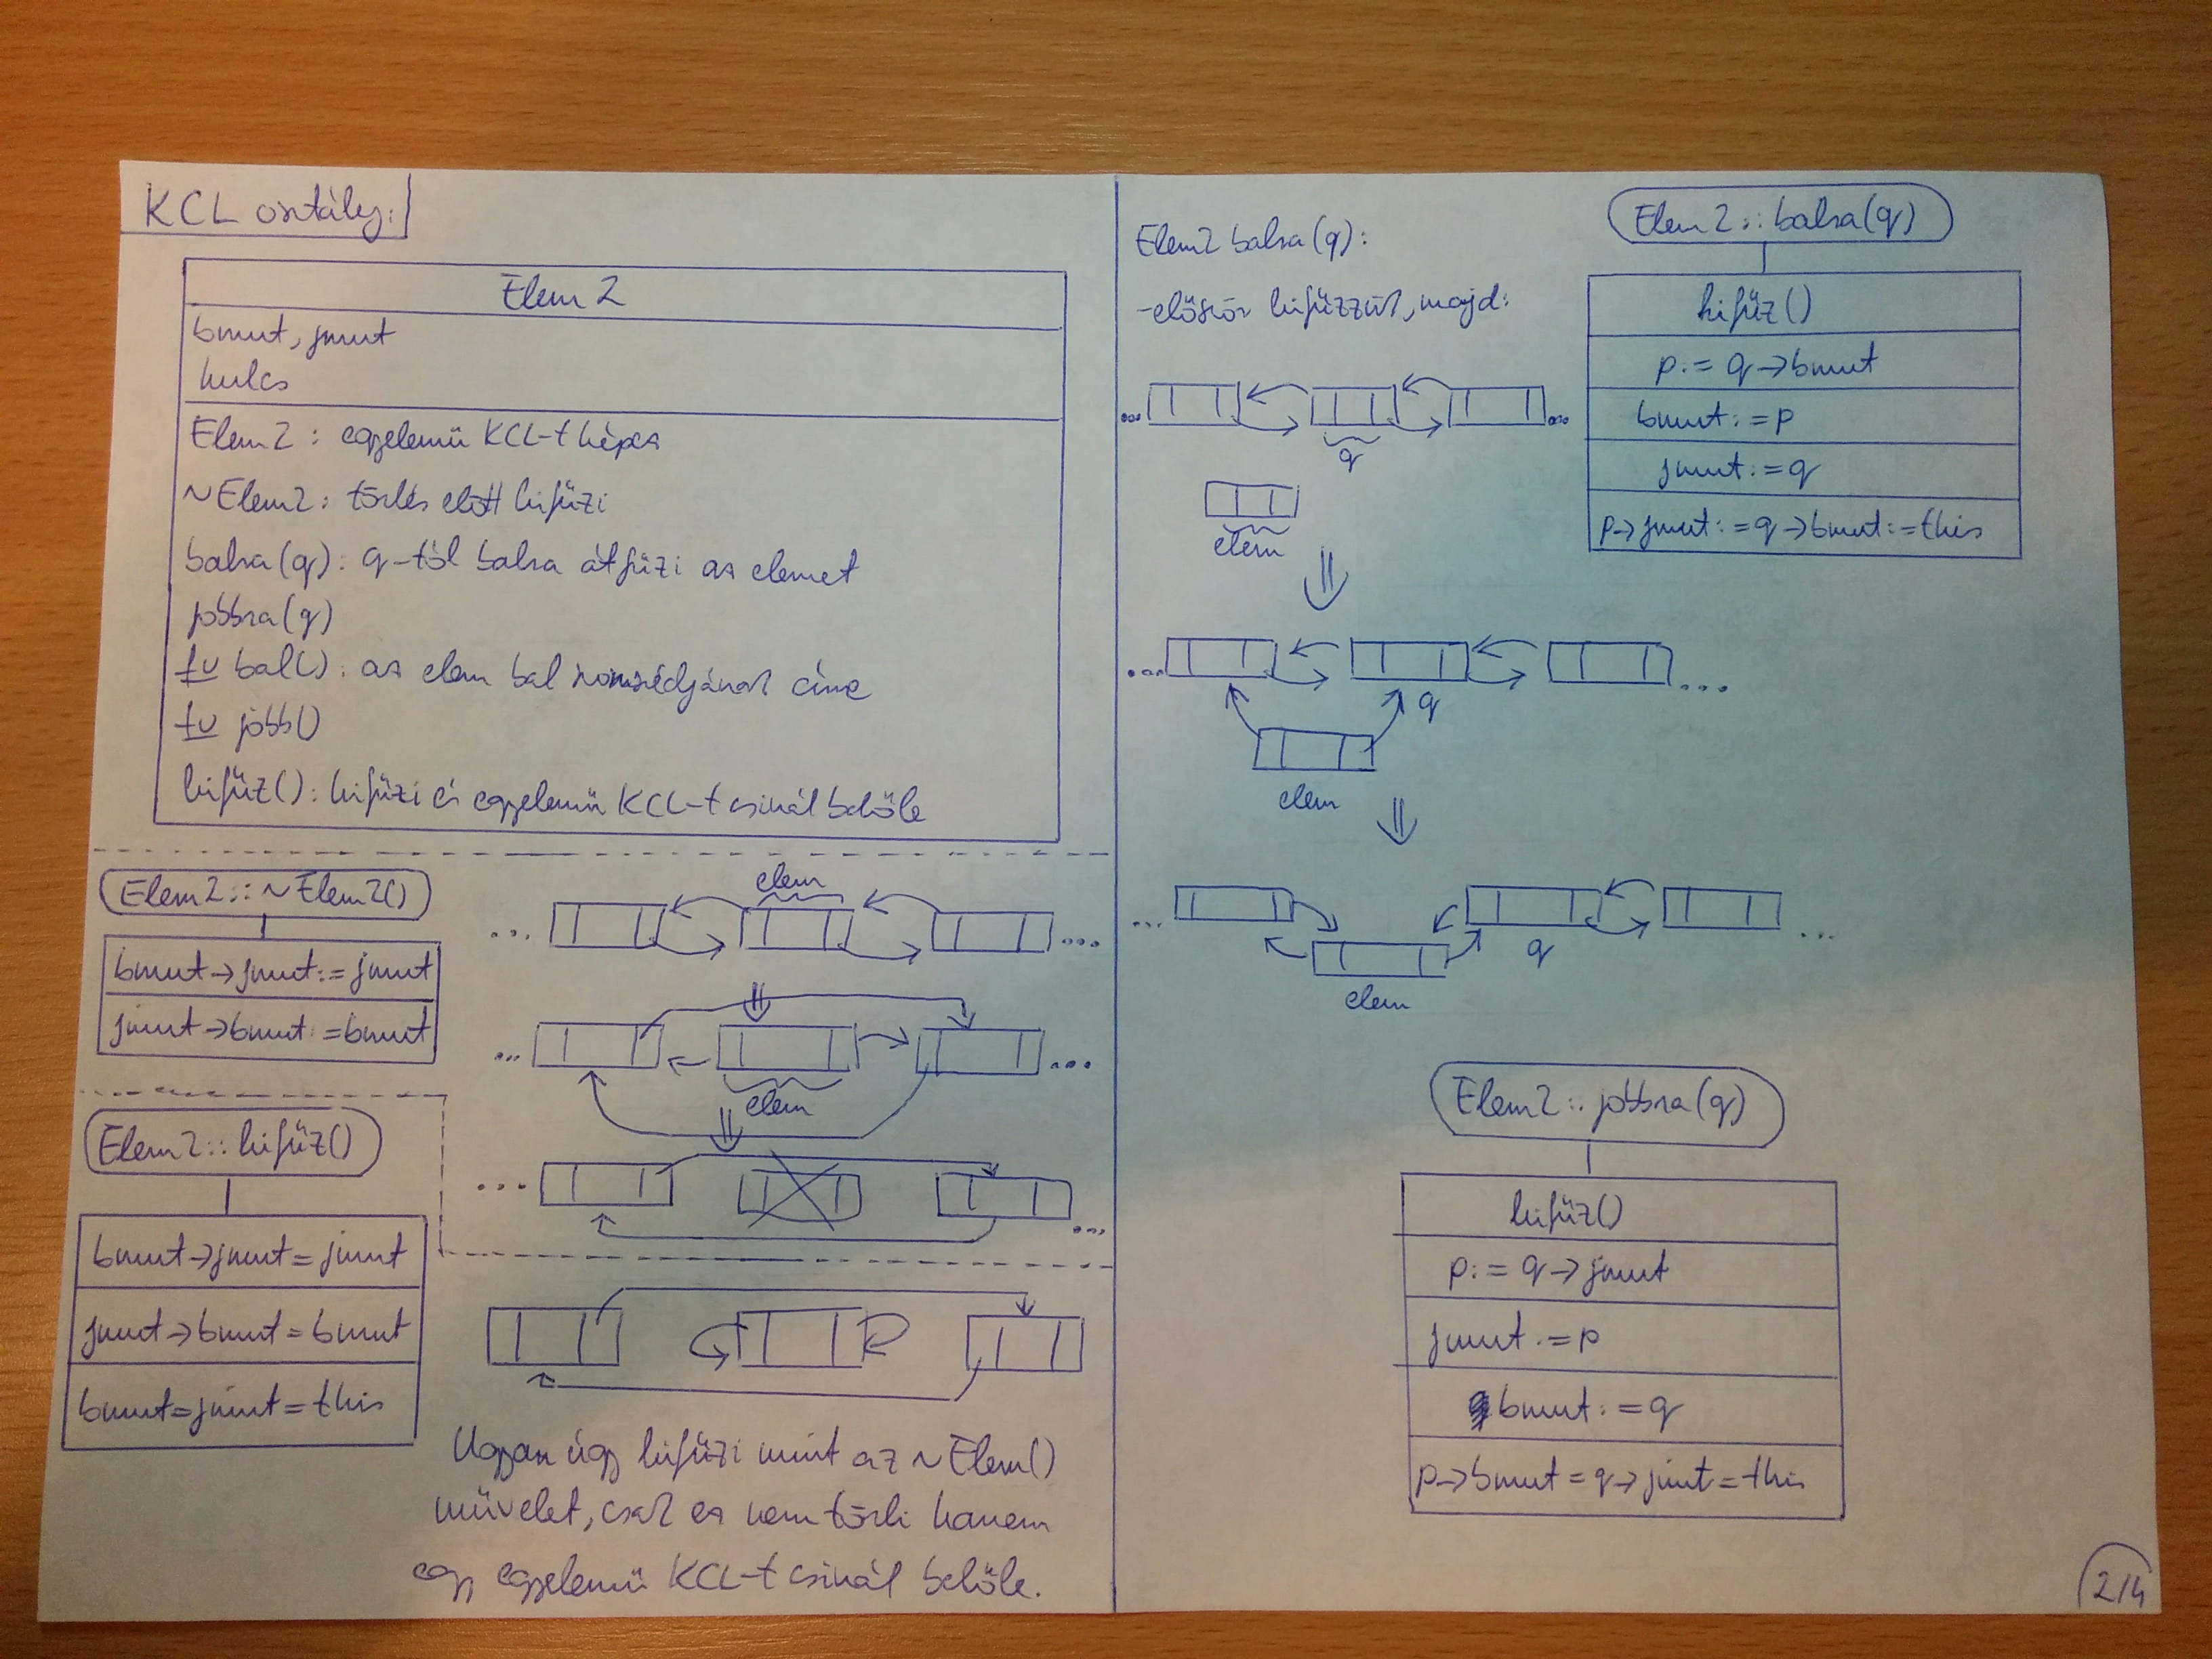 KCL osztály:
Elem2
bmut, jmut
kulcs
Elem2: egyelemű KCL-t képez
~Elem2: törlés előtt kifűzi
balra(q): q-tól balra átfűzi az elemet
jobbra(q)
fv bal(): az elem bal szomszédjának címe
fv jobb()
kifűz(): kifűzi és egyelemű KCL-t csinál belőle
Elem2::~Elem2()
bmut→jmut:=jmut
jmut→bmut:=bmut
elem
...
....
...
elem
...
...
...
Elem2::kifűz()
bmut→jmut=jmut
jmut→bmut=bmut
bmut=jmut=this
Ugyan úgy kifűzi mint az ~Elem()
művelet, csak ez nem törli hanem
egy egyelemű KCL-t csinál belőle.
Elem2 balra(q):
-először kifűzzük, majd:
...
...
q
elem
...
...
q
elem
...
...
q
elem
Elem2::balra(q)
kifűz()
p:=q→bmut
bmut:=p
jmut:=q
p→jmut:=q→bmut:=this
Elem2::jobbra(q)
kifűz()
p:=q→jmut
jmut:=p
bmut:=q
p→bmut=q→jmut=this
2/4